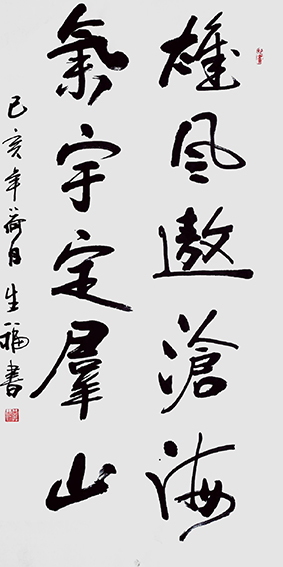 雄风遨滄海
氣宇定羣山
己亥年荷月生福書